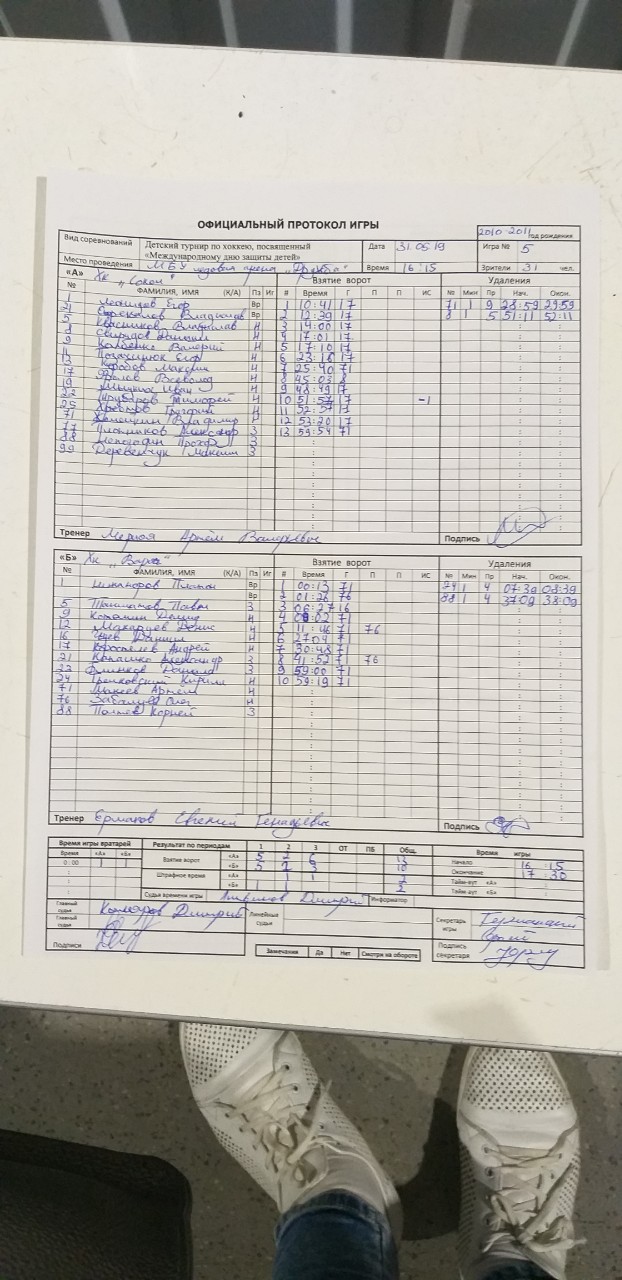 ОФИЦИАЛЬНЫЙ ПРОТОКОЛ ИГРЫ
2010-2011 год рождения
Вид соревнований Детский турнир по хоккею, посвященный «Международному дню защиты детей» Дата 31.05.19 Игра № 5
Место проведения МБУ ледовая арена „Дружба“ Время 16:15 Зрители 31 чел.
«А» Хк „Сокол“ Взятие ворот Удаления
№ ФАМИЛИЯ, ИМЯ (К/А) Пз Иг # Время Г П П ИС № Мин Пр Нач. Окон.
1 Леонидов Егор Вр 1 10:41 17 71 1 9 28:59 29:59
21 Владислав Вр 2 12:39 17 8 1 5 51:11 52:11
5 Квасников Владислав Н 3 14:00 17
8 Свиридов Даниил Н 4 17:01 17
9 Валерий Н 5 17:10 17
11 Егор Н 6 23:18 17
13 Максим Н 7 25:40 71
17 Всеволод Н 8 45:03 8
19 Иван Н 9 48:49 17
22 Тимофей Н 10 51:57 17 -1
25 Н 11 52:57 13
71 Владимир 12 53:20 17
77 Александр З 13 59:54 71
88 З
99 Деревенчук Максим З
Тренер Артём Валерьевич Подпись
«Б» Хк „Варяг“ Взятие ворот Удаления
№ ФАМИЛИЯ, ИМЯ (К/А) Пз Иг # Время Г П П ИС № Мин Пр Нач. Окон.
1 Платон Вр 1 00:13 71 24 1 4 07:39 08:39
Вр 2 01:26 76 88 1 4 37:09 38:09
5 Павел З 3 06:27 16
9 Н 4 09:02 71
12 Макарцев Денис Н 5 11:46 71 76
16 Даниил Н 6 27:04 71
17 Коростелев Андрей Н 7 30:48 71
21 Александр З 8 41:52 71 76
22 З 9 59:00 71
24 Кирилл Н 10 59:19 71
71 Макеев Артём Н
76 Олег Н
88 Корней З
Тренер Ермаков Евгений Генадьевич Подпись
Время игры вратарей Результат по периодам 1 2 3 ОТ ПБ Общ. Время игры
Время «А» «Б» Взятие ворот «А» 5 2 6 13 Начало 16:15
0:00 «Б» 5 2 3 10 Окончание 17:30
Штрафное время «А» 1 1 2 Тайм-аут «А»
«Б» 1 1 2 Тайм-аут «Б»
Судья времени игры Дмитрий Информатор
Главный судья Дмитрий Линейные судьи Секретарь игры
Главный судья
Подписи Подпись секретаря
Замечания Да Нет Смотри на обороте